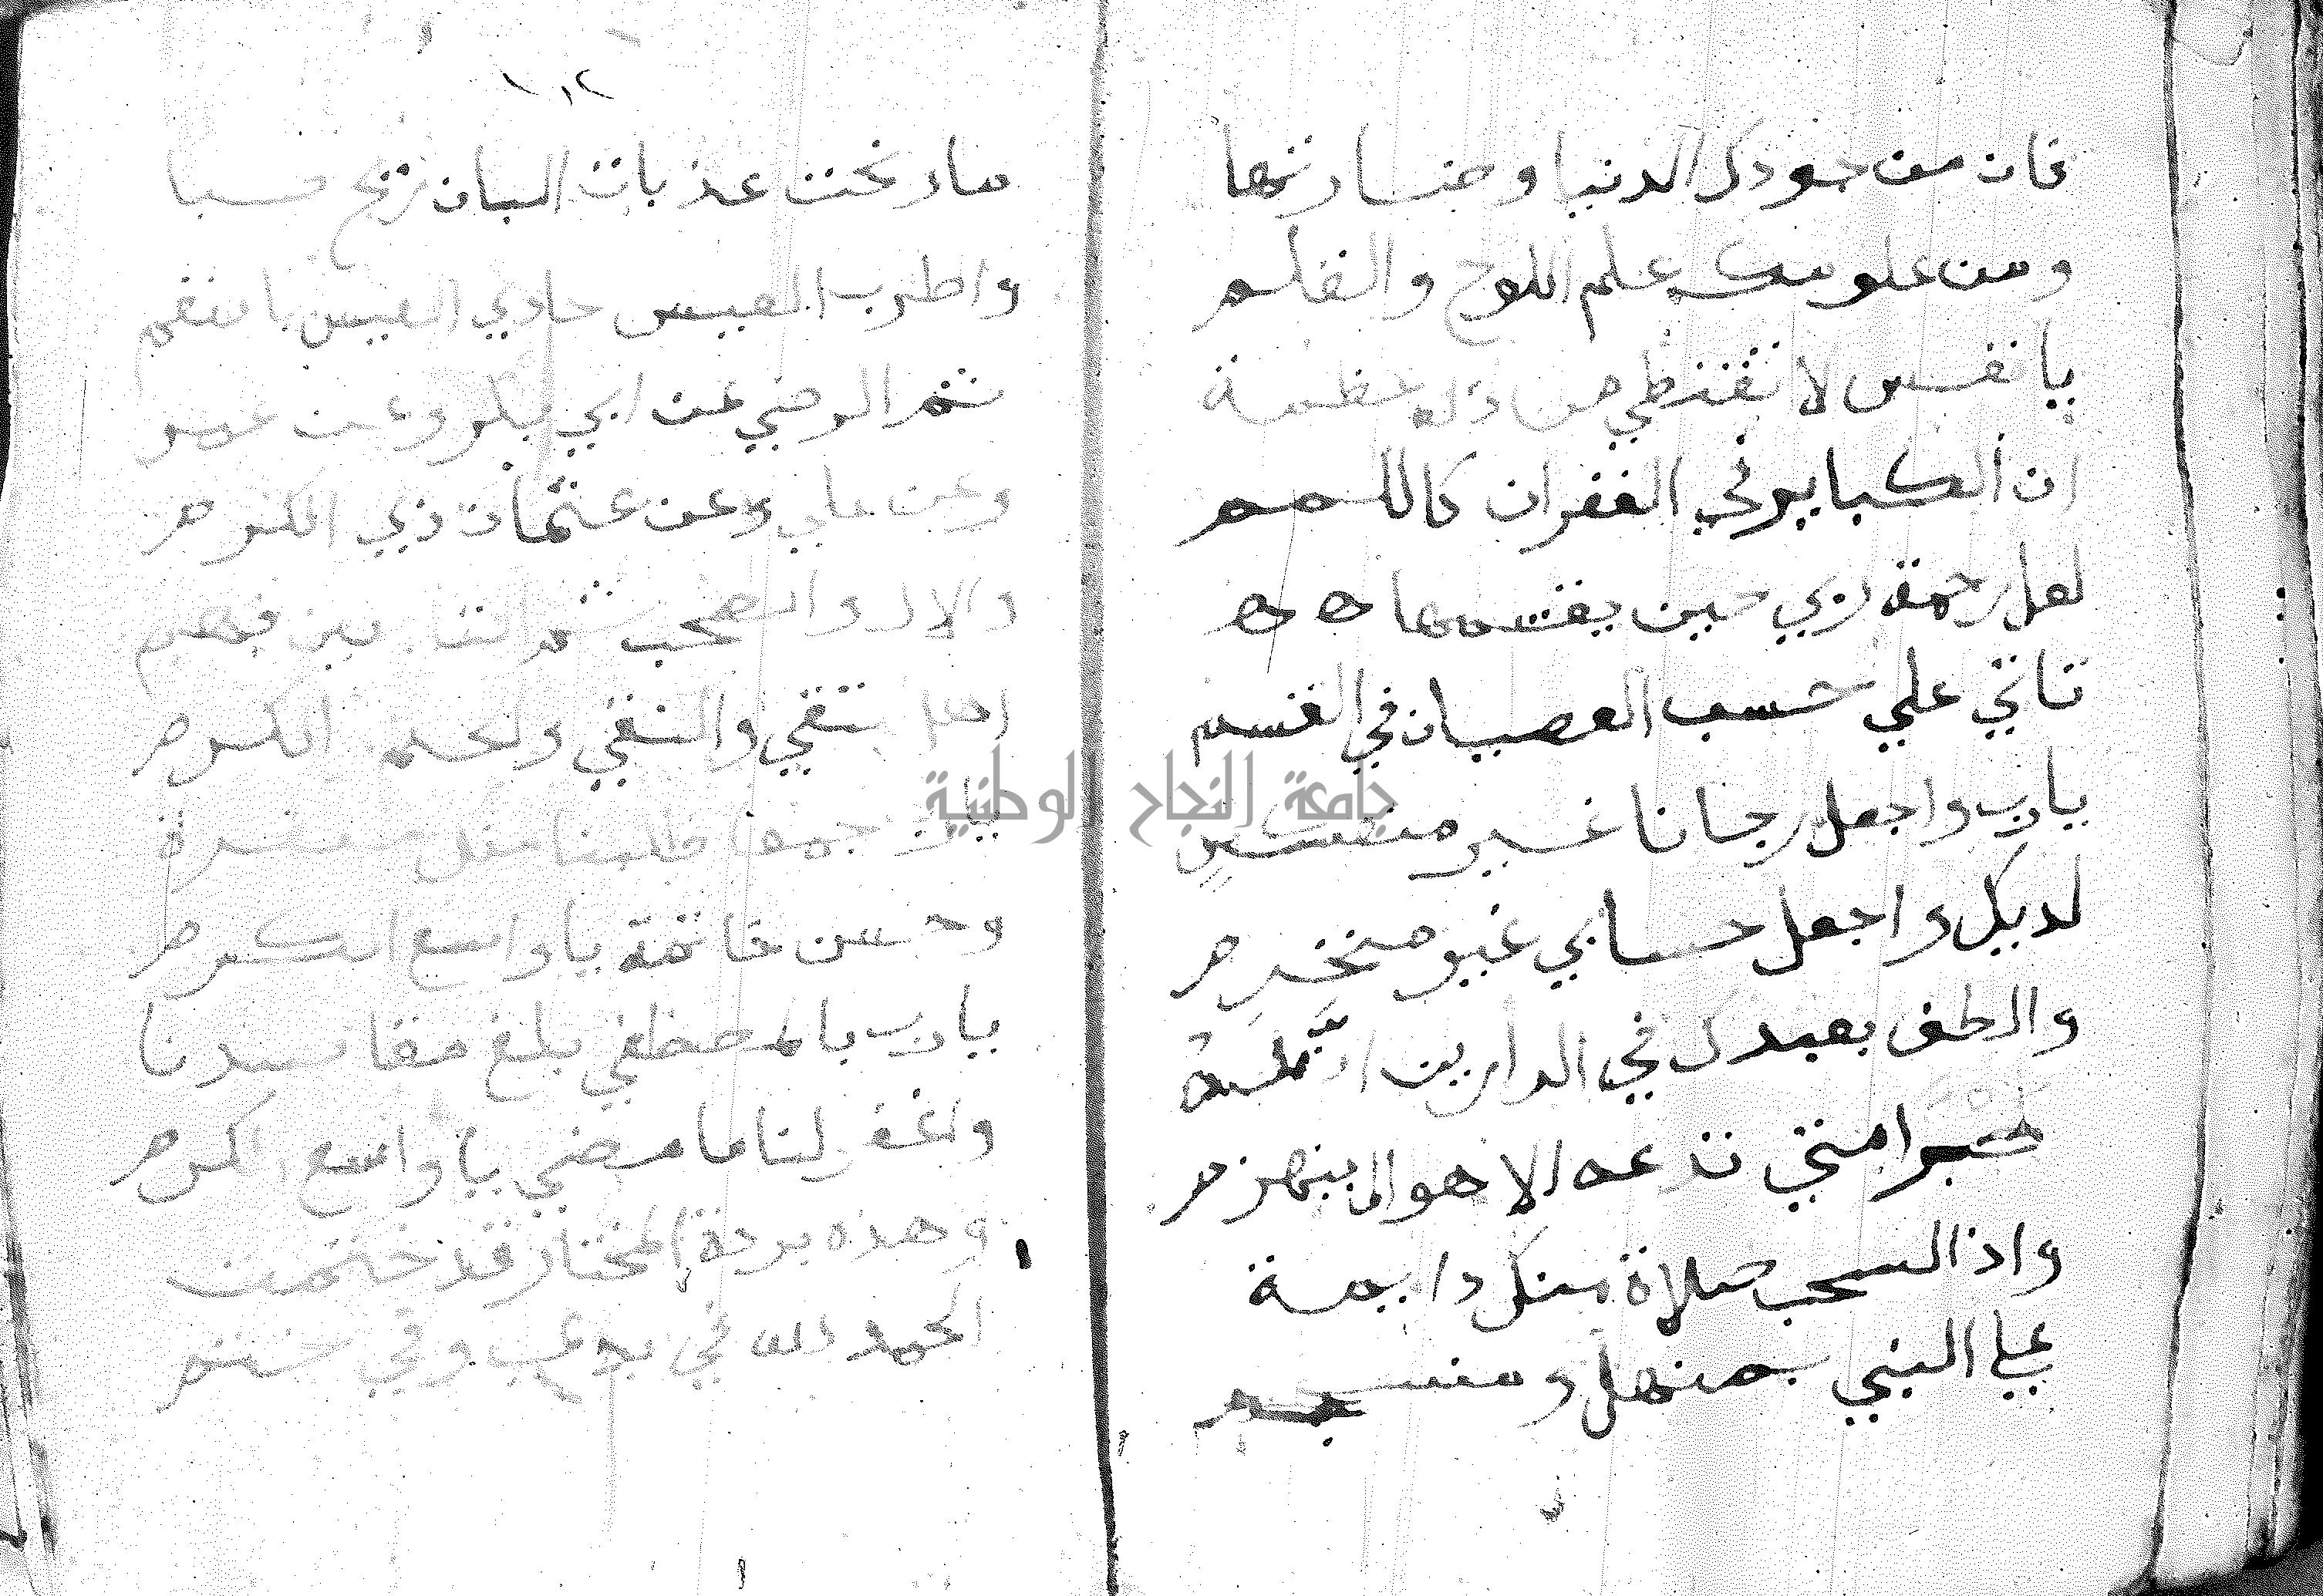 فان من جودك الدنيا وضارتها
ومن علومك علم اللوح والقلم
يا نفس لا تقنطي من زلة عظمة
ان الكباير في الغفران كاللمم
لعل رحمة ربي حين يقسمها
تاتي علي حسب العصيان في القسم
يا رب واجعل رجانا غير منعكس
لديك واجعل حسابي غير منخرم
والطف بعبدك في الدارين ان له
صبرا متي تدعه الاهوال ينهزم
واذا السحب صلاة منك دايمة
علي النبي بمنهل ومنسجم
١٠٢
ما رنحت عذبات البان ريح صبا
واطرب العيس حادي العيس بالنغم
ثم الرضي عن ابي بكر وعن عمر
وعن علي وعن عثمان ذي الكرم
والال والصحب ثم التابعين فهم
اهل التقي والنقي والحلم والكرم
يا رب جمعا طالبنا منك مغفرة
وحسن خاتمة يا واسع الكرم
يا رب بالمصطفي بلغ مقاصدنا
واغفر لنا ما مضي يا واسع الكرم
وهذه بردة المختار قد ختمت
الحمد لله في بدء وفي ختم
جامعة النجاح الوطنية